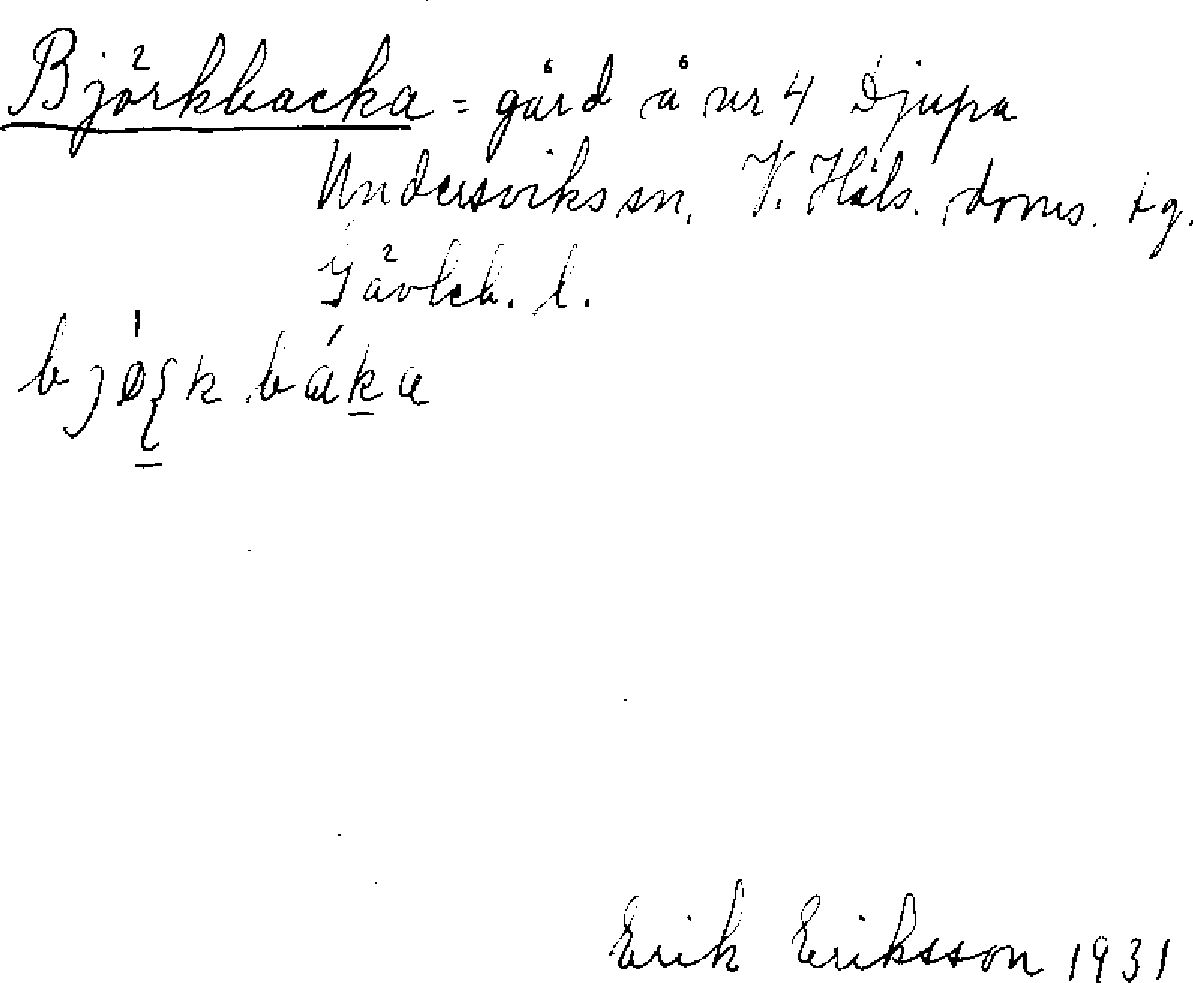 Björkbacka = gård å nr 4 Djupa
Undersviks sn. V. Häls. doms. tg.
Gävleb. l.
bjö́rk báka
Erik Eriksson 1931